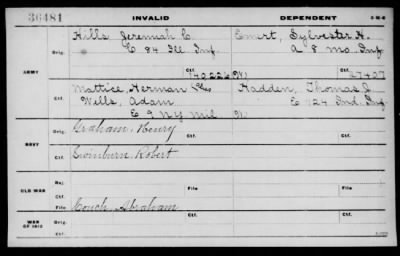 36481 INVALID DEPENDENT
Hills Jeremiah C. Emert, Sylvester H.
Orig. E 84 Ill Inf. A 8 Mo. Inf
ARMY Ctf. 140226 Ctf. 27407
Mattice, Herman Hadden, Thomas J.
Ctf. Wells, Adam E 124 Ind. Inf
E 9 N Y Mil
Orig. Graham, Henry
NAVY
Ctf. Robert
Rej.
OLD WAR File File
Ctf. Couch, Abraham
WAR OF 1812 Orig. Ctf. Ctf.
Ctf.